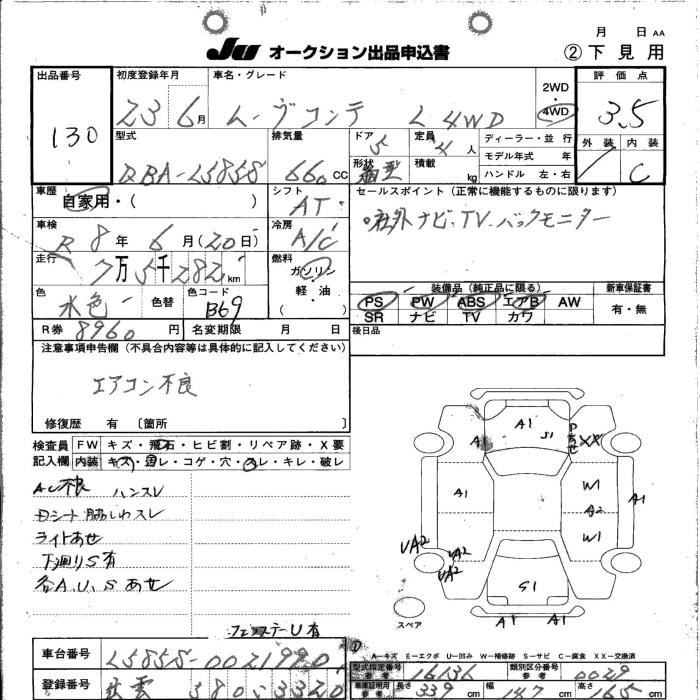 月 日 AA
JU オークション出品申込書 ②下見用
出品番号 初度登録年月 車名・グレード 2WD・4WD 評価点
130 23 6月 ムーヴコンテ L 4WD 3.5
型式 排気量 ドア 定員 ディーラー・並行 外装 内装
DBA-L585S 660 CC 5 4人 モデル年式 年 C
形状 積載 kg ハンドル 左・右
箱型
車歴 シフト セールスポイント(正常に機能するものに限ります)
自家用・( ) AT
社外ナビ・TV バックモニター
車検 冷房
R8年 6月(20日) A/C
走行 燃料
7万5千282km ガソリン・軽・油 ( )
装備品(純正品に限る) 新車保証書
色 色替 色コード PS PW ABS エアB AW 有・無
水色 B69 SR ナビ TV カワ
R券 8960円 名変期限 月 日 後日品
注意事項申告欄(不具合内容等は具体的に記入してください)
エアコン不良
修復歴 有〔箇所 〕
検査員 FW キズ・飛石・ヒビ割・リペア跡・X要
記入欄 内装 キズ・ヨゴレ・コゲ・穴・スレ・キレ・破レ
AC不良 ハンスレ
Dシート しわスレ
ライトあせ
下廻りS有
各A.U.Sあせ
フェンダーU有
A1 S1 A1 XX
A1 W1 A2 W1 A1
UA2 UA2 UA2
S1 A1 A1
スペア
A-キズ E-エクボ U-凹み W-補修跡 S-サビ C-腐食 XX-交換済
車台番号 L585S-0021920
型式指定番号 16136 類別区分番号 0029
登録番号 出雲 580 3320
長さ 339 cm 幅 147 cm 高さ 165 cm